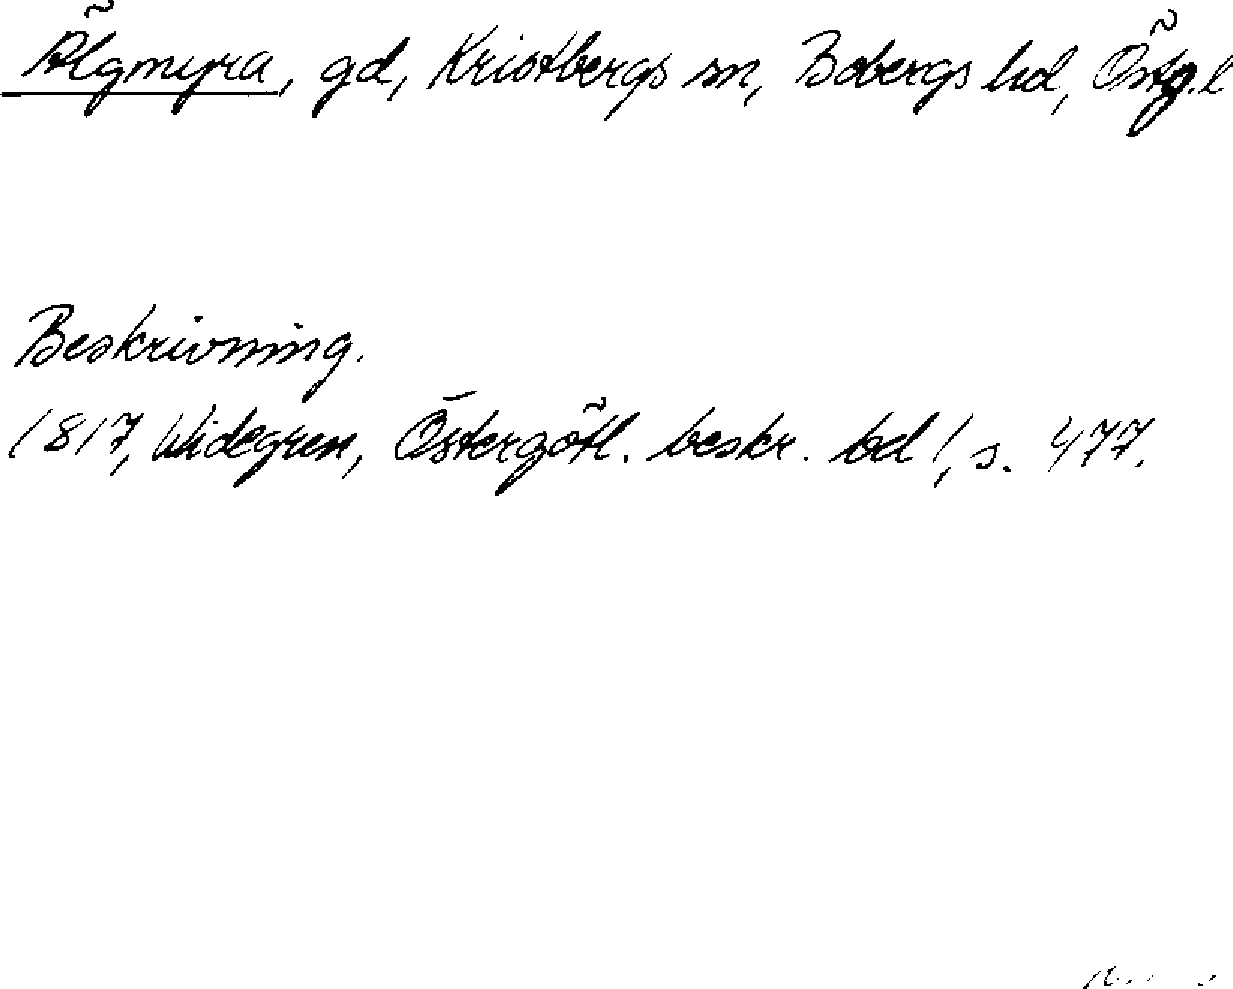 Älgmyra, gd, Kristbergs sn, Bobergs hd, Östg.l
Beskrivning.
1817, Widegren, Östergötl. beskr. bd 1, s. 477.